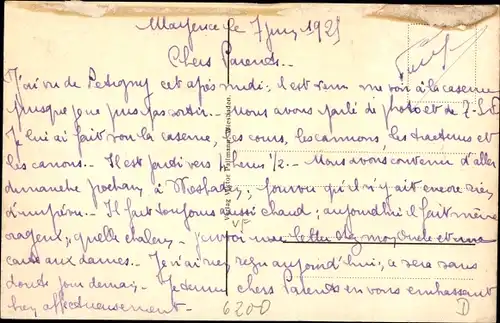 Mayence le 7 juin 1925
Chers Parents..
J'ai vu de Letigny cet après midi; il est venu me voir à la caserne
puisque je ne puis pas sortir.. Nous avons parlé de photo et de T.S.F
Je lui ai fait voir la caserne, les cours, les camions, les tracteurs et
les canons.. Il est parti vers 1/2 -- Nous avons convenu d'aller
dimanche prochain à Wiesbaden, pourvu qu'il n'y ait encore rien
d'imprévu -- Il fait toujours aussi chaud; aujourd'hui il fait même
orageux; quelle chaleur -- J'envoie une lettre chez mon Oncle et une
carte aux dames.. Je n'ai rien reçu aujourd'hui, ce sera sans
doute pour demain. Je termine Chers Parents en vous embrassant
bien affectueusement -
Verlag Victor Wiesbaden.
VF
6200
D